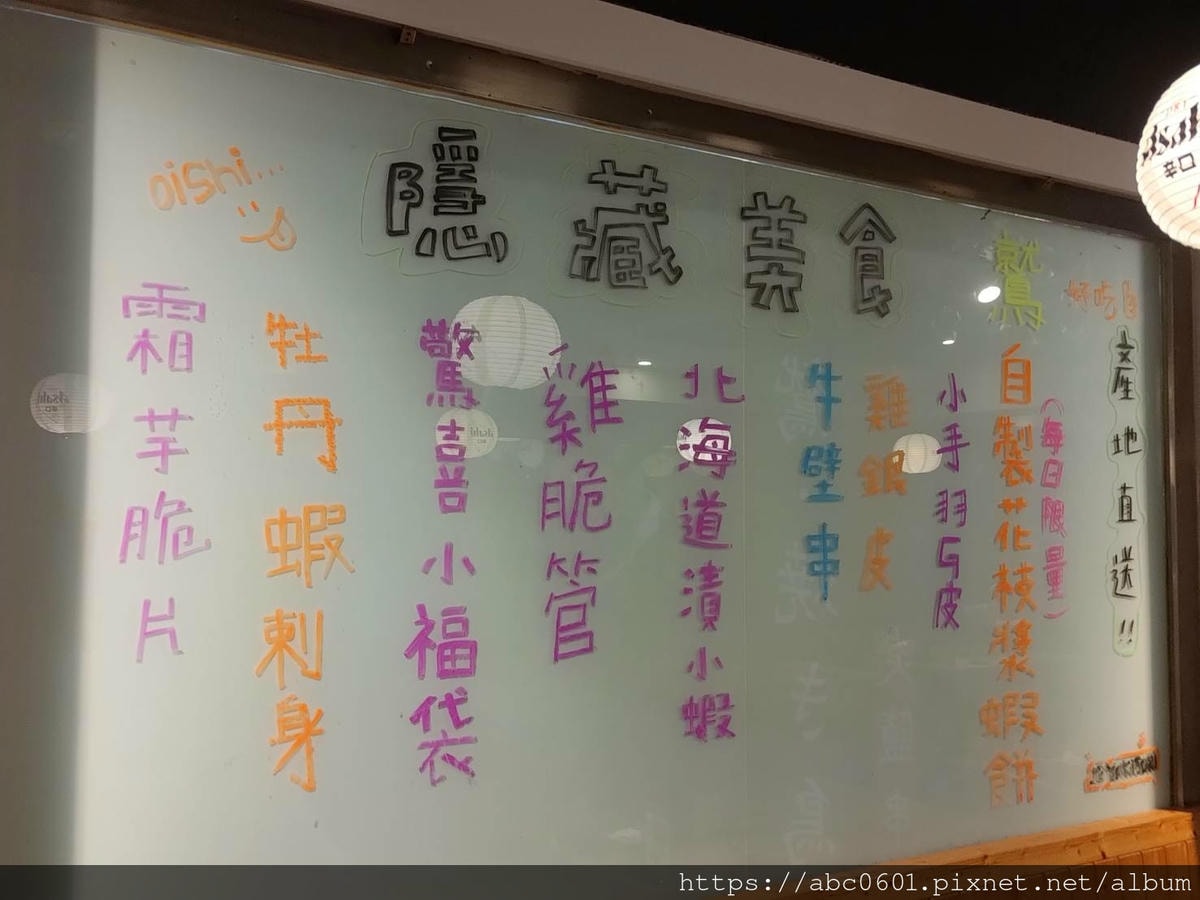 隱藏美食
oishi...
好吃
鷲
產地直送!!
(每日限量)
自製花枝漿蝦餅
小手羽巧皮
雞銀皮
牛壁串
北海道漬小蝦
雞脆管
驚喜小福袋
牡丹蝦刺身
霜芋脆片
Asahi
辛口
https://abc0601.pixnet.net/album